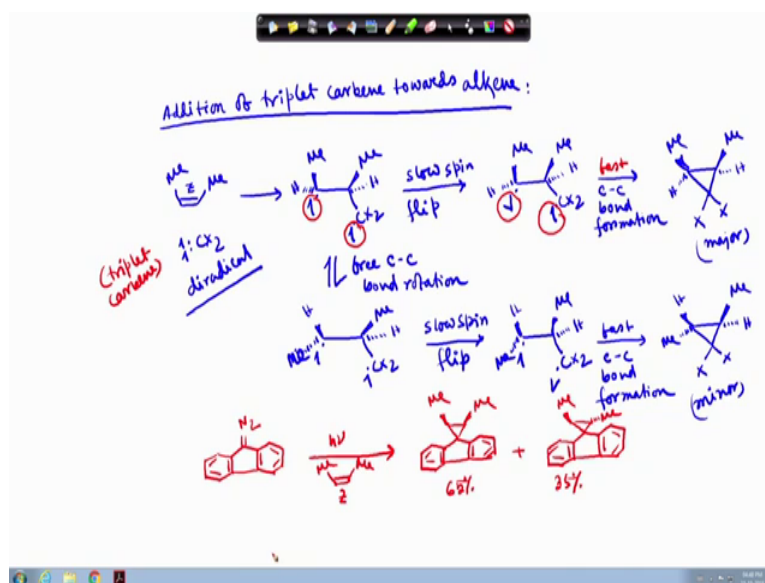 Addition of triplet carbene towards alkene:
Me Me
Z
H Me Me H
1 CX2
1
slow spin
flip
Me Me
H H
CX2
1
fast
C-C
bond
formation
Me Me
H H
X X
(major)
(triplet
carbene)
1: CX2
1
diradical
1L free C-C
bond rotation
H Me
Me H
1 CX2
1
slow spin
flip
H Me
Me H
1 CX2
fast
C-C
bond
formation
H Me
Me H
X X
(minor)
N2
hν
Me Me
Z
Me Me
65%
+
Me Me
35%